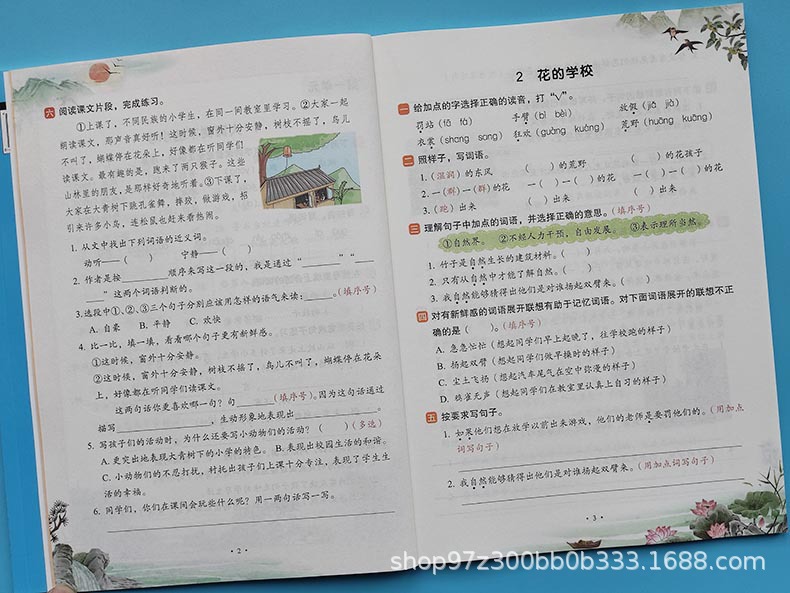 六 阅读课文片段，完成练习。
①上课了，不同民族的小学生，在同一间教室里学习。②大家一起
朗读课文，那声音真好听！这时候，窗外十分安静，树枝不摇了，鸟儿
不叫了，蝴蝶停在花朵上，好像都在听同学们
读课文。最有趣的是，跑来了两只猴子。这些
山林里的朋友，是那样好奇地听着。③下课了，
大家在大青树下跳孔雀舞，摔跤，做游戏，招
引来许多小鸟，连松鼠也赶来看热闹。
1. 从文中找出下列词语的近义词。
动听——（ ） 宁静——（ ）
2. 作者是按________顺序来写这一段的，我是通过“________”“
____”这两个词语判断的。
3.选段中①、②、③三个句子分别应该用怎样的语气来读：______。（填序号）
A. 自豪 B. 平静 C. 欢快
4. 比一比，填一填，看看哪个句子更有新鲜感。
①这时候，窗外十分安静。
②这时候，窗外十分安静，树枝不摇了，鸟儿不叫了，蝴蝶停在花朵
上，好像都在听同学们读课文。
这两句话你更喜欢哪一句？句______（填序号）。因为这句话通过
描写____________，生动形象地表现出____________。
5. 写孩子们的活动时，为什么还要写小动物们的活动？（ ）（多选）
A. 更突出地表现大青树下的小学的特色。 B. 表现出校园生活的和谐。
C. 小动物们的不忍打扰，衬托出孩子们上课十分专注，表现了学生生
活的幸福。
6. 同学们，你们在课间会玩些什么呢？用一两句话写一写。
· 2 ·
2 花的学校
一 给加点的字选择正确的读音，打“√”。
罚站（fá fā） 手臂（bì bèi） 放假（jiǎ jià）
衣裳（shang sang） 狂欢（guàng kuáng） 荒野（huāng kuāng）
二 照样子，写词语。
1.（湿润）的东风 （ ）的荒野 （ ）的花孩子
2. 一（群）一（群）的花 一（ ）一（ ）的花 一（ ）一（ ）的花
3.（跑）出来 （ ）出来 （ ）出来
三 理解句子中加点的词语，并选择正确的意思。（填序号）
①自然界。 ②不经人力干预，自由发展。 ③表示理所当然。
1. 竹子是自然生长的建筑材料。（ ）
2. 只有从自然中才能了解自然。（ ）
3. 我自然能够猜得出他们是对谁扬起双臂来。（ ）
四 对有新鲜感的词语展开联想有助于记忆词语。对下面词语展开的联想不正
确的是（ ）。（填序号）
A. 急急忙忙（想起同学们早上起晚了，往学校跑的样子）
B. 扬起双臂（想起同学们做早操时的样子）
C. 尘土飞扬（想起汽车尾气在空中弥漫的样子）
D. 鸦雀无声（想起同学们在教室里认真上自习的样子）
五 按要求写句子。
1. 如果他们想在放学以前出来游戏，他们的老师是要罚他们的。（用加点
词写句子）
2. 我自然能够猜得出他们是对谁扬起双臂来。（用加点词写句子）
· 3 ·
shop97z300bb0b333.1688.com